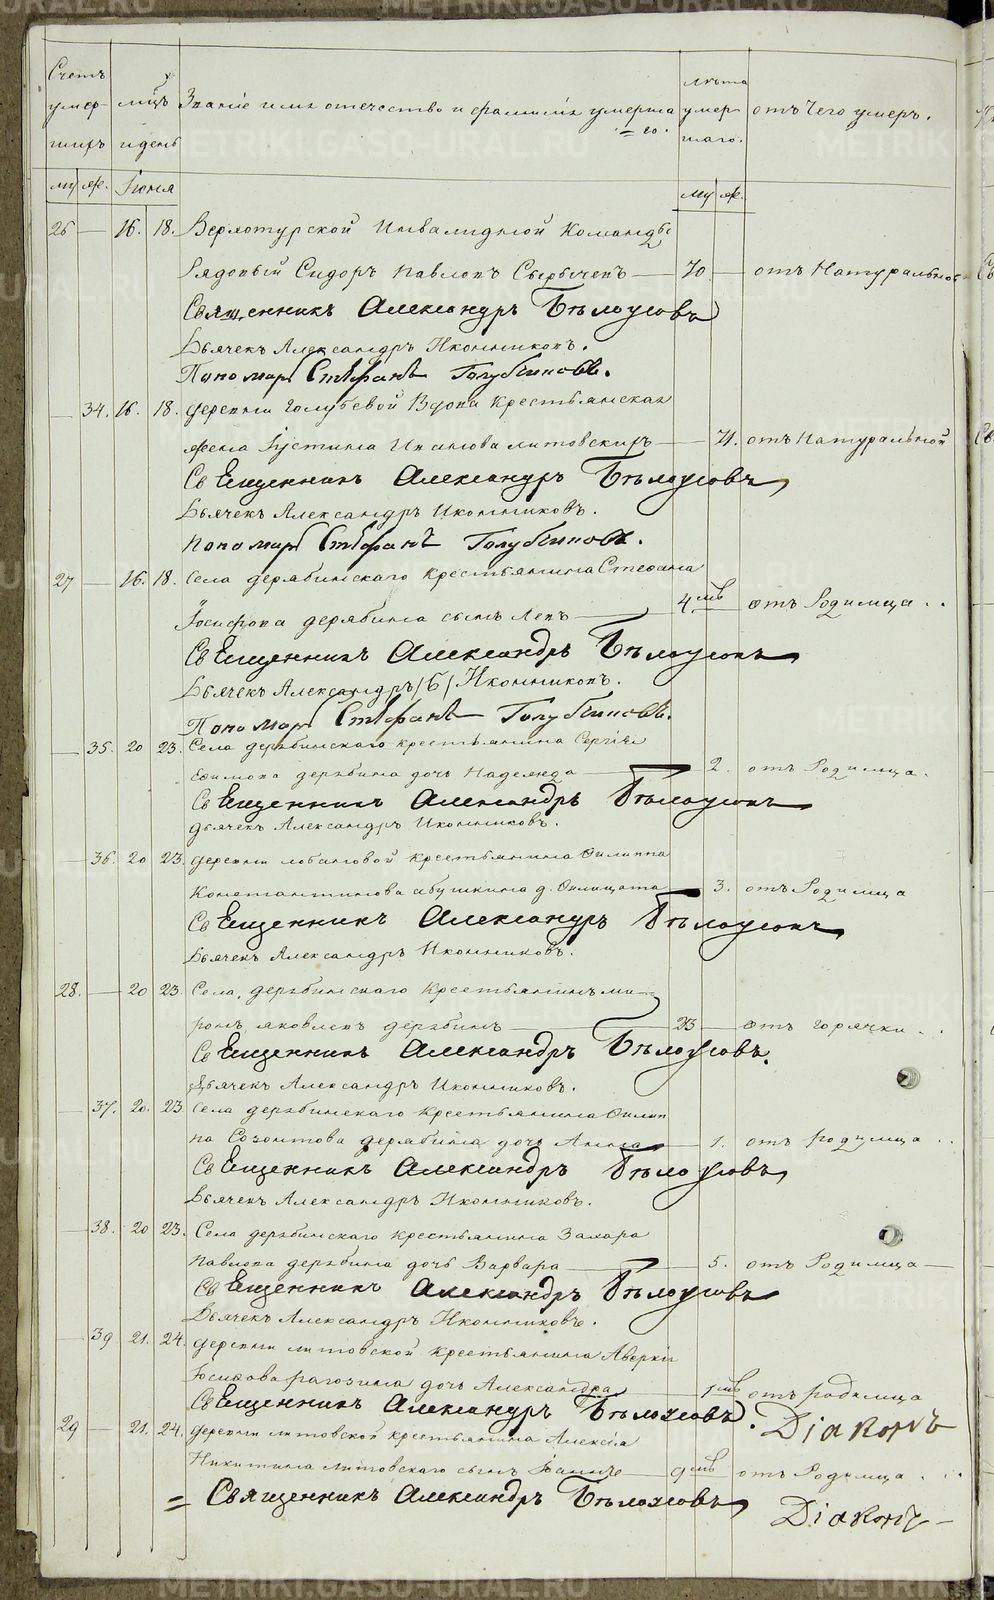 Счетъ умер- шихъ
мц̃ъ и день
Званіе имя отечество и фамилія умерша =го.
лѣта умер- шаго.
отъ Чего умеръ.
му. Іюня му. же.
26 — 16. 18. Верхотурской Инвалидной Команды
Рядовый Сидоръ Павловъ — 70 — отъ Натуральной
Священникъ Александръ Бѣлоусовъ
Дьячекъ Александръ Иконниковъ.
Пономарь Стефанъ Голубчиковъ.
— 34. 16. 18. деревни Голубевой Вдова Крестьянская
жена Іустина Иванова Литовскихъ — 71. отъ Натуральной
Священникъ Александръ Бѣлоусовъ
Дьячекъ Александръ Иконниковъ.
Пономарь Стефанъ Голубчиковъ.
27 — 16. 18. Села дерябинскаго Крестьянина Стефана
Іосифова дерябина сынъ Левъ — 4. — отъ Родимца . .
Священникъ Александръ Бѣлоусовъ
Дьячекъ Александръ /б/ Иконниковъ.
Пономарь Стефанъ Голубчиковъ.
— 35. 20 23. Села дерябинскаго крестьянина Сергія
Ефимова дерябина дочь Надежда — 2. отъ Родимца.
Священникъ Александръ Бѣлоусовъ
Дьячекъ Александръ Иконниковъ.
— 36. 20 23. деревни лобановой крестьянина Филиппа
Константинова абушкина д. — 3. отъ Родимца
Священникъ Александръ Бѣлоусовъ
Дьячекъ Александръ Иконниковъ.
28. — 20 23 Села дерябинскаго Крестьянинъ ми-
ронъ яковлевъ дерябинъ — 23 — отъ горячки . .
Священникъ Александръ Бѣлоусовъ.
Дьячекъ Александръ Иконниковъ.
37. 20. 23 Села дерябинскаго Крестьянина Филип
па Созонтова дерябина дочь Анна — 1. отъ родимца . .
Священникъ Александръ Бѣлоусовъ
Дьячекъ Александръ Иконниковъ.
— 38. 20 23. Села дерябинскаго крестьянина Захара
Павлова дерябина дочь Варвара — 5. отъ Родимца —
Священникъ Александръ Бѣлоусовъ
Дьячекъ Александръ Иконниковъ.
— 39 21. 24. деревни литовской крестьянина Аверкія
рагозина дочь Александра — отъ родимца
Священникъ Александръ Бѣлоусовъ. Діаконъ
29 — 21. 24. деревни литовской крестьянина Алексія
Никитина литовскаго сынъ — 9 — отъ Родимца . . .
= Священникъ Александръ Бѣлоусовъ Діаконъ —
METRIKI.GASO-URAL.RU